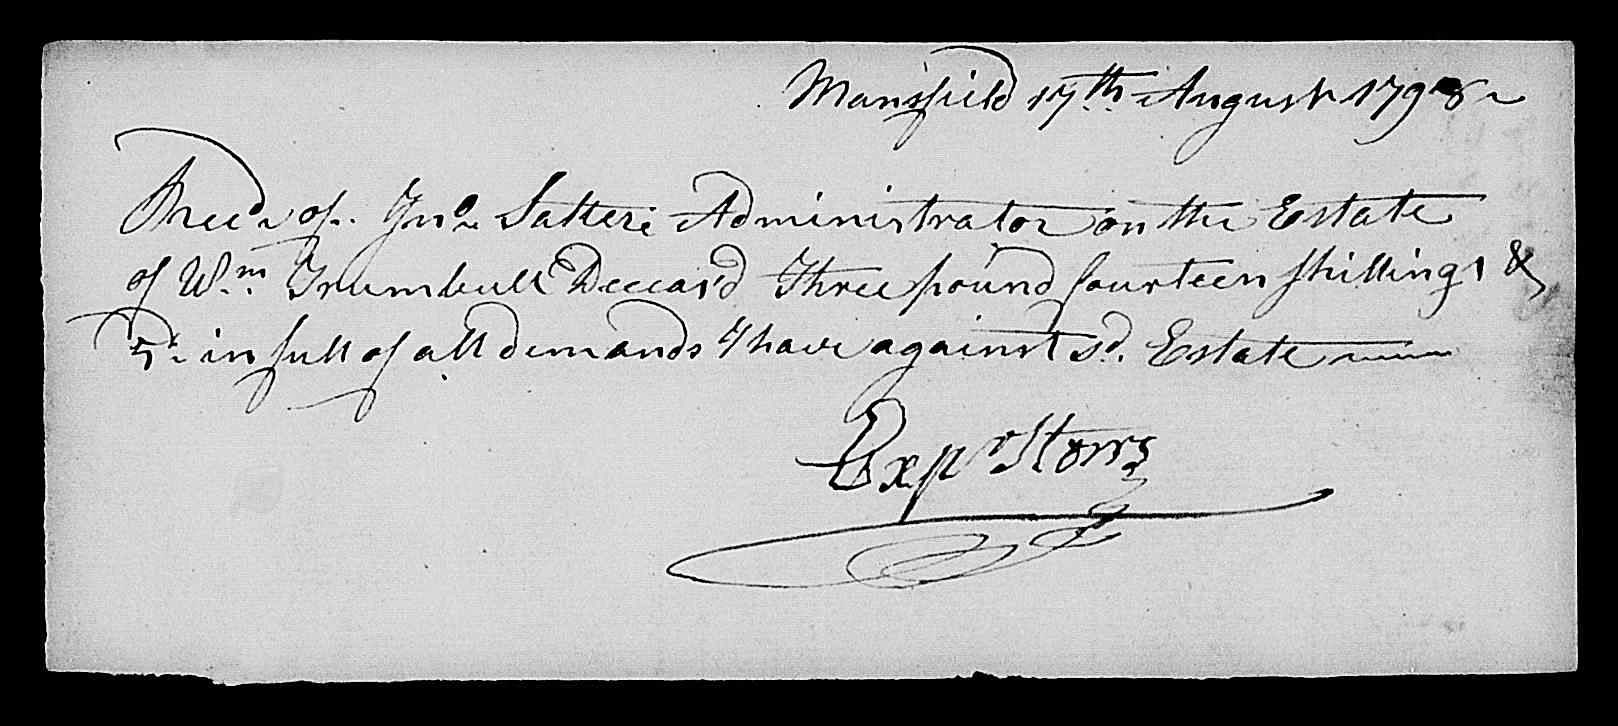 Mansfield 17th August 1798
Recd of Jno Salter Administrator on the Estate
of Wm Trumbull Deceas'd Three pound fourteen shillings &
5d in full of all demands I have against sd. Estate
Expr Storrs